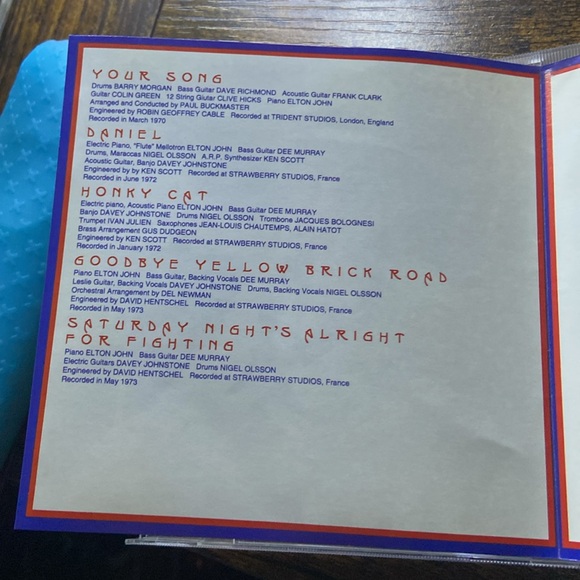 YOUR SONG
Drums BARRY MORGAN Bass Guitar DAVE RICHMOND Acoustic Guitar FRANK CLARK
Guitar COLIN GREEN 12 String Guitar CLIVE HICKS Piano ELTON JOHN
Arranged and Conducted by PAUL BUCKMASTER
Engineered by ROBIN GEOFFREY CABLE Recorded at TRIDENT STUDIOS, London, England
Recorded in March 1970
DANIEL
Electric Piano, "Flute" Mellotron ELTON JOHN Bass Guitar DEE MURRAY
Drums, Maraccas NIGEL OLSSON A.R.P. Synthesizer KEN SCOTT
Acoustic Guitar, Banjo DAVEY JOHNSTONE
Engineered by by KEN SCOTT Recorded at STRAWBERRY STUDIOS, France
Recorded in June 1972
HONKY CAT
Electric piano, Acoustic Piano ELTON JOHN Bass Guitar DEE MURRAY
Banjo DAVEY JOHNSTONE Drums NIGEL OLSSON Trombone JACQUES BOLOGNESI
Trumpet IVAN JULIEN Saxophones JEAN-LOUIS CHAUTEMPS, ALAIN HATOT
Brass Arrangement GUS DUDGEON
Engineered by KEN SCOTT Recorded at STRAWBERRY STUDIOS, France
Recorded in January 1972
GOODBYE YELLOW BRICK ROAD
Piano ELTON JOHN Bass Guitar, Backing Vocals DEE MURRAY
Leslie Guitar, Backing Vocals DAVEY JOHNSTONE Drums, Backing Vocals NIGEL OLSSON
Orchestral Arrangement by DEL NEWMAN
Engineered by DAVID HENTSCHEL Recorded at STRAWBERRY STUDIOS, France
Recorded in May 1973
SATURDAY NIGHT'S ALRIGHT
FOR FIGHTING
Piano ELTON JOHN Bass Guitar DEE MURRAY
Electric Guitars DAVEY JOHNSTONE Drums NIGEL OLSSON
Engineered by DAVID HENTSCHEL Recorded at STRAWBERRY STUDIOS, France
Recorded in May 1973